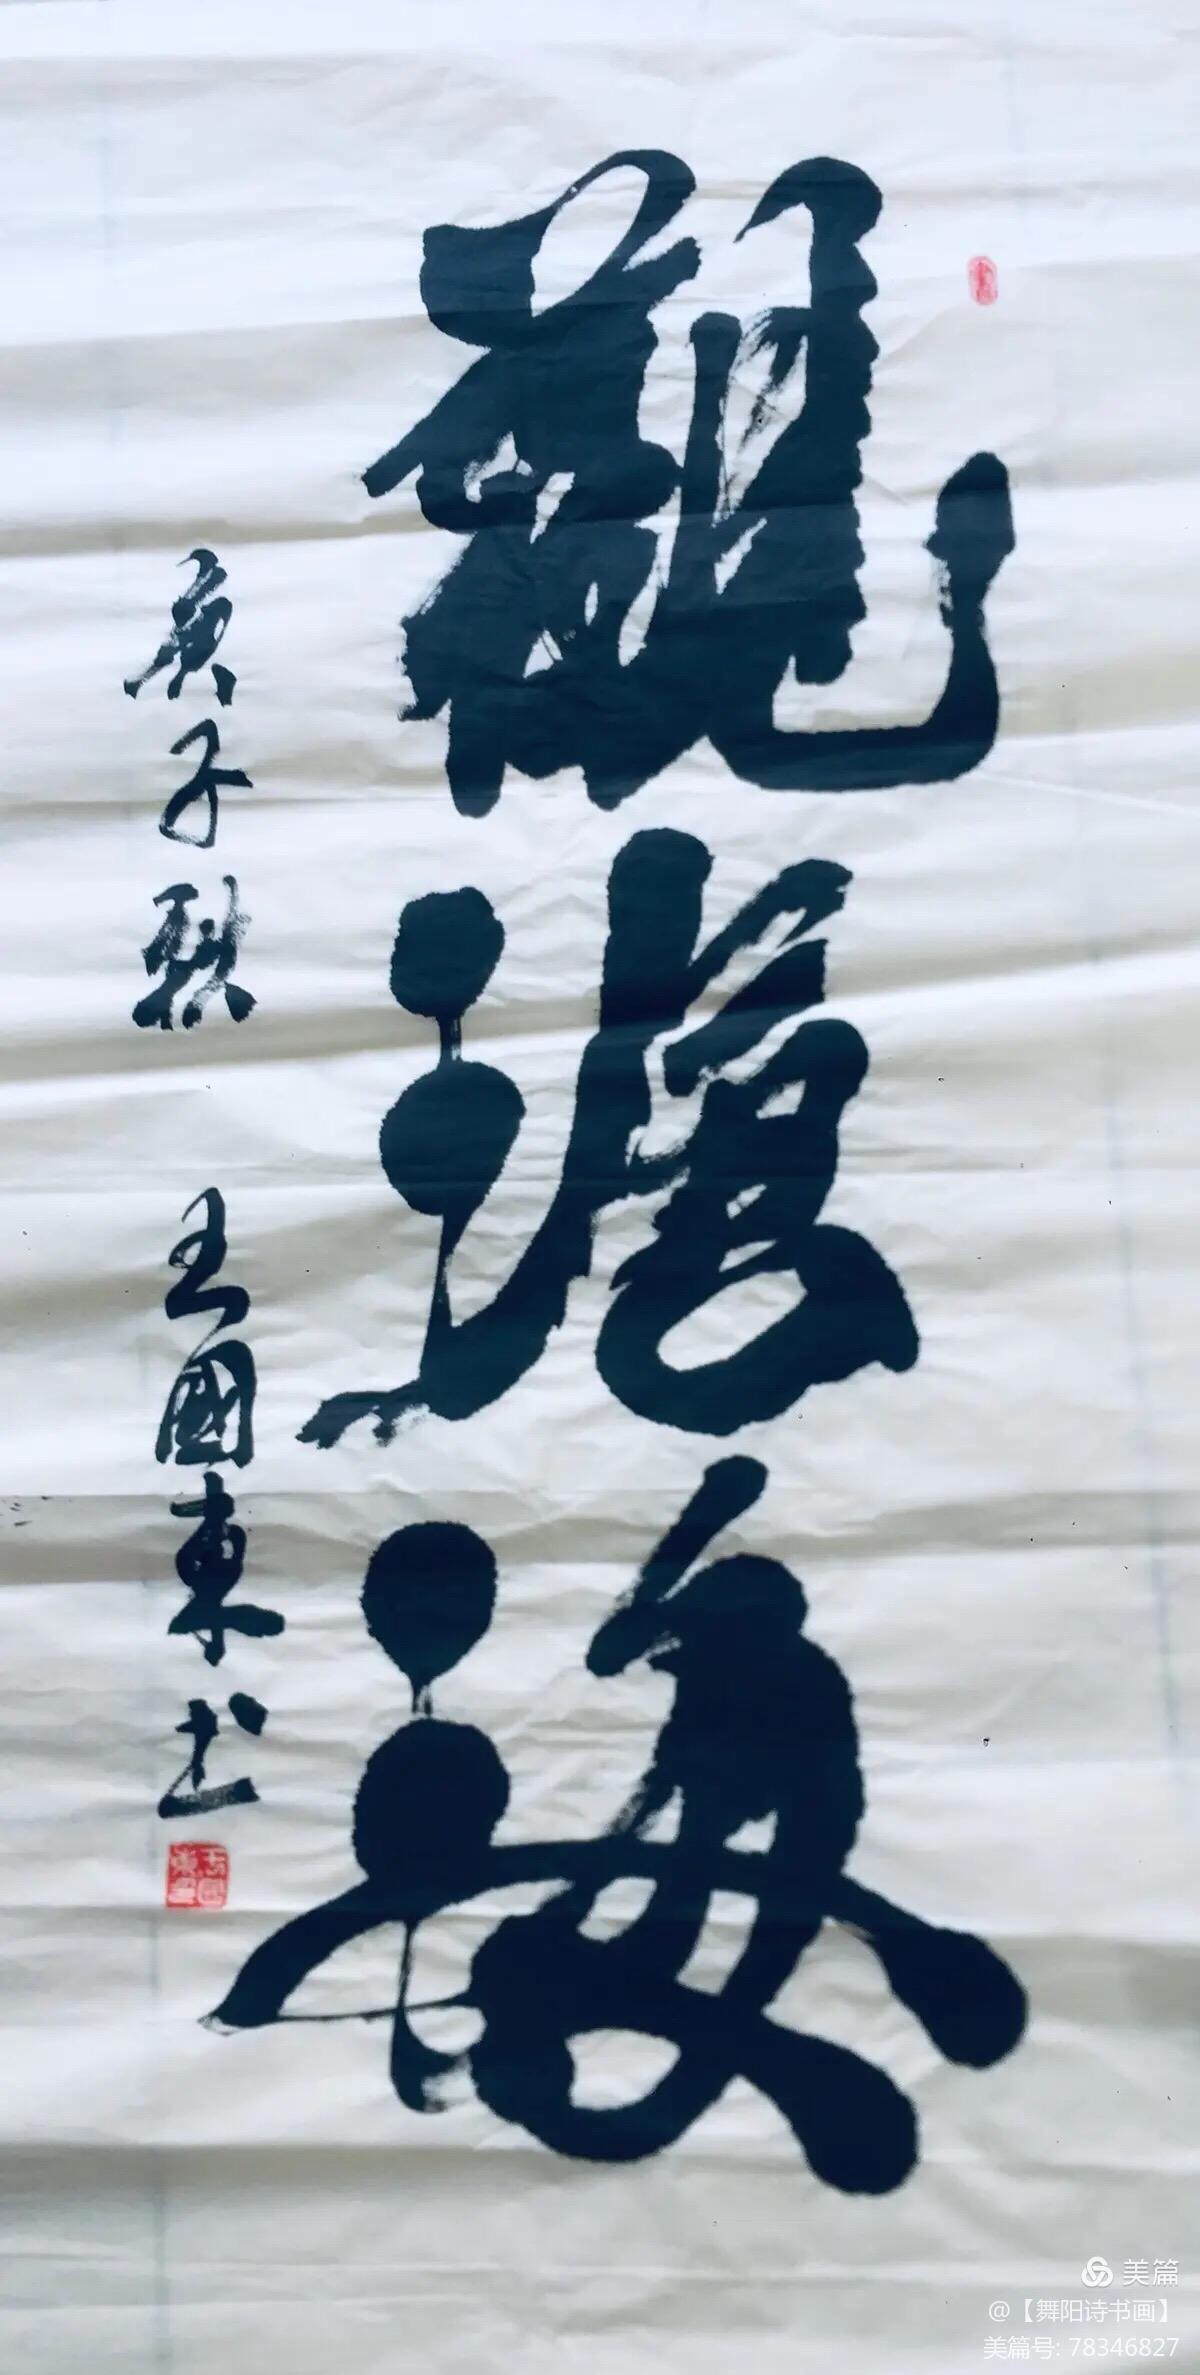 觀滄海
庚子秋
王國東书
美篇
@【舞阳诗书画】
美篇号: 78346827